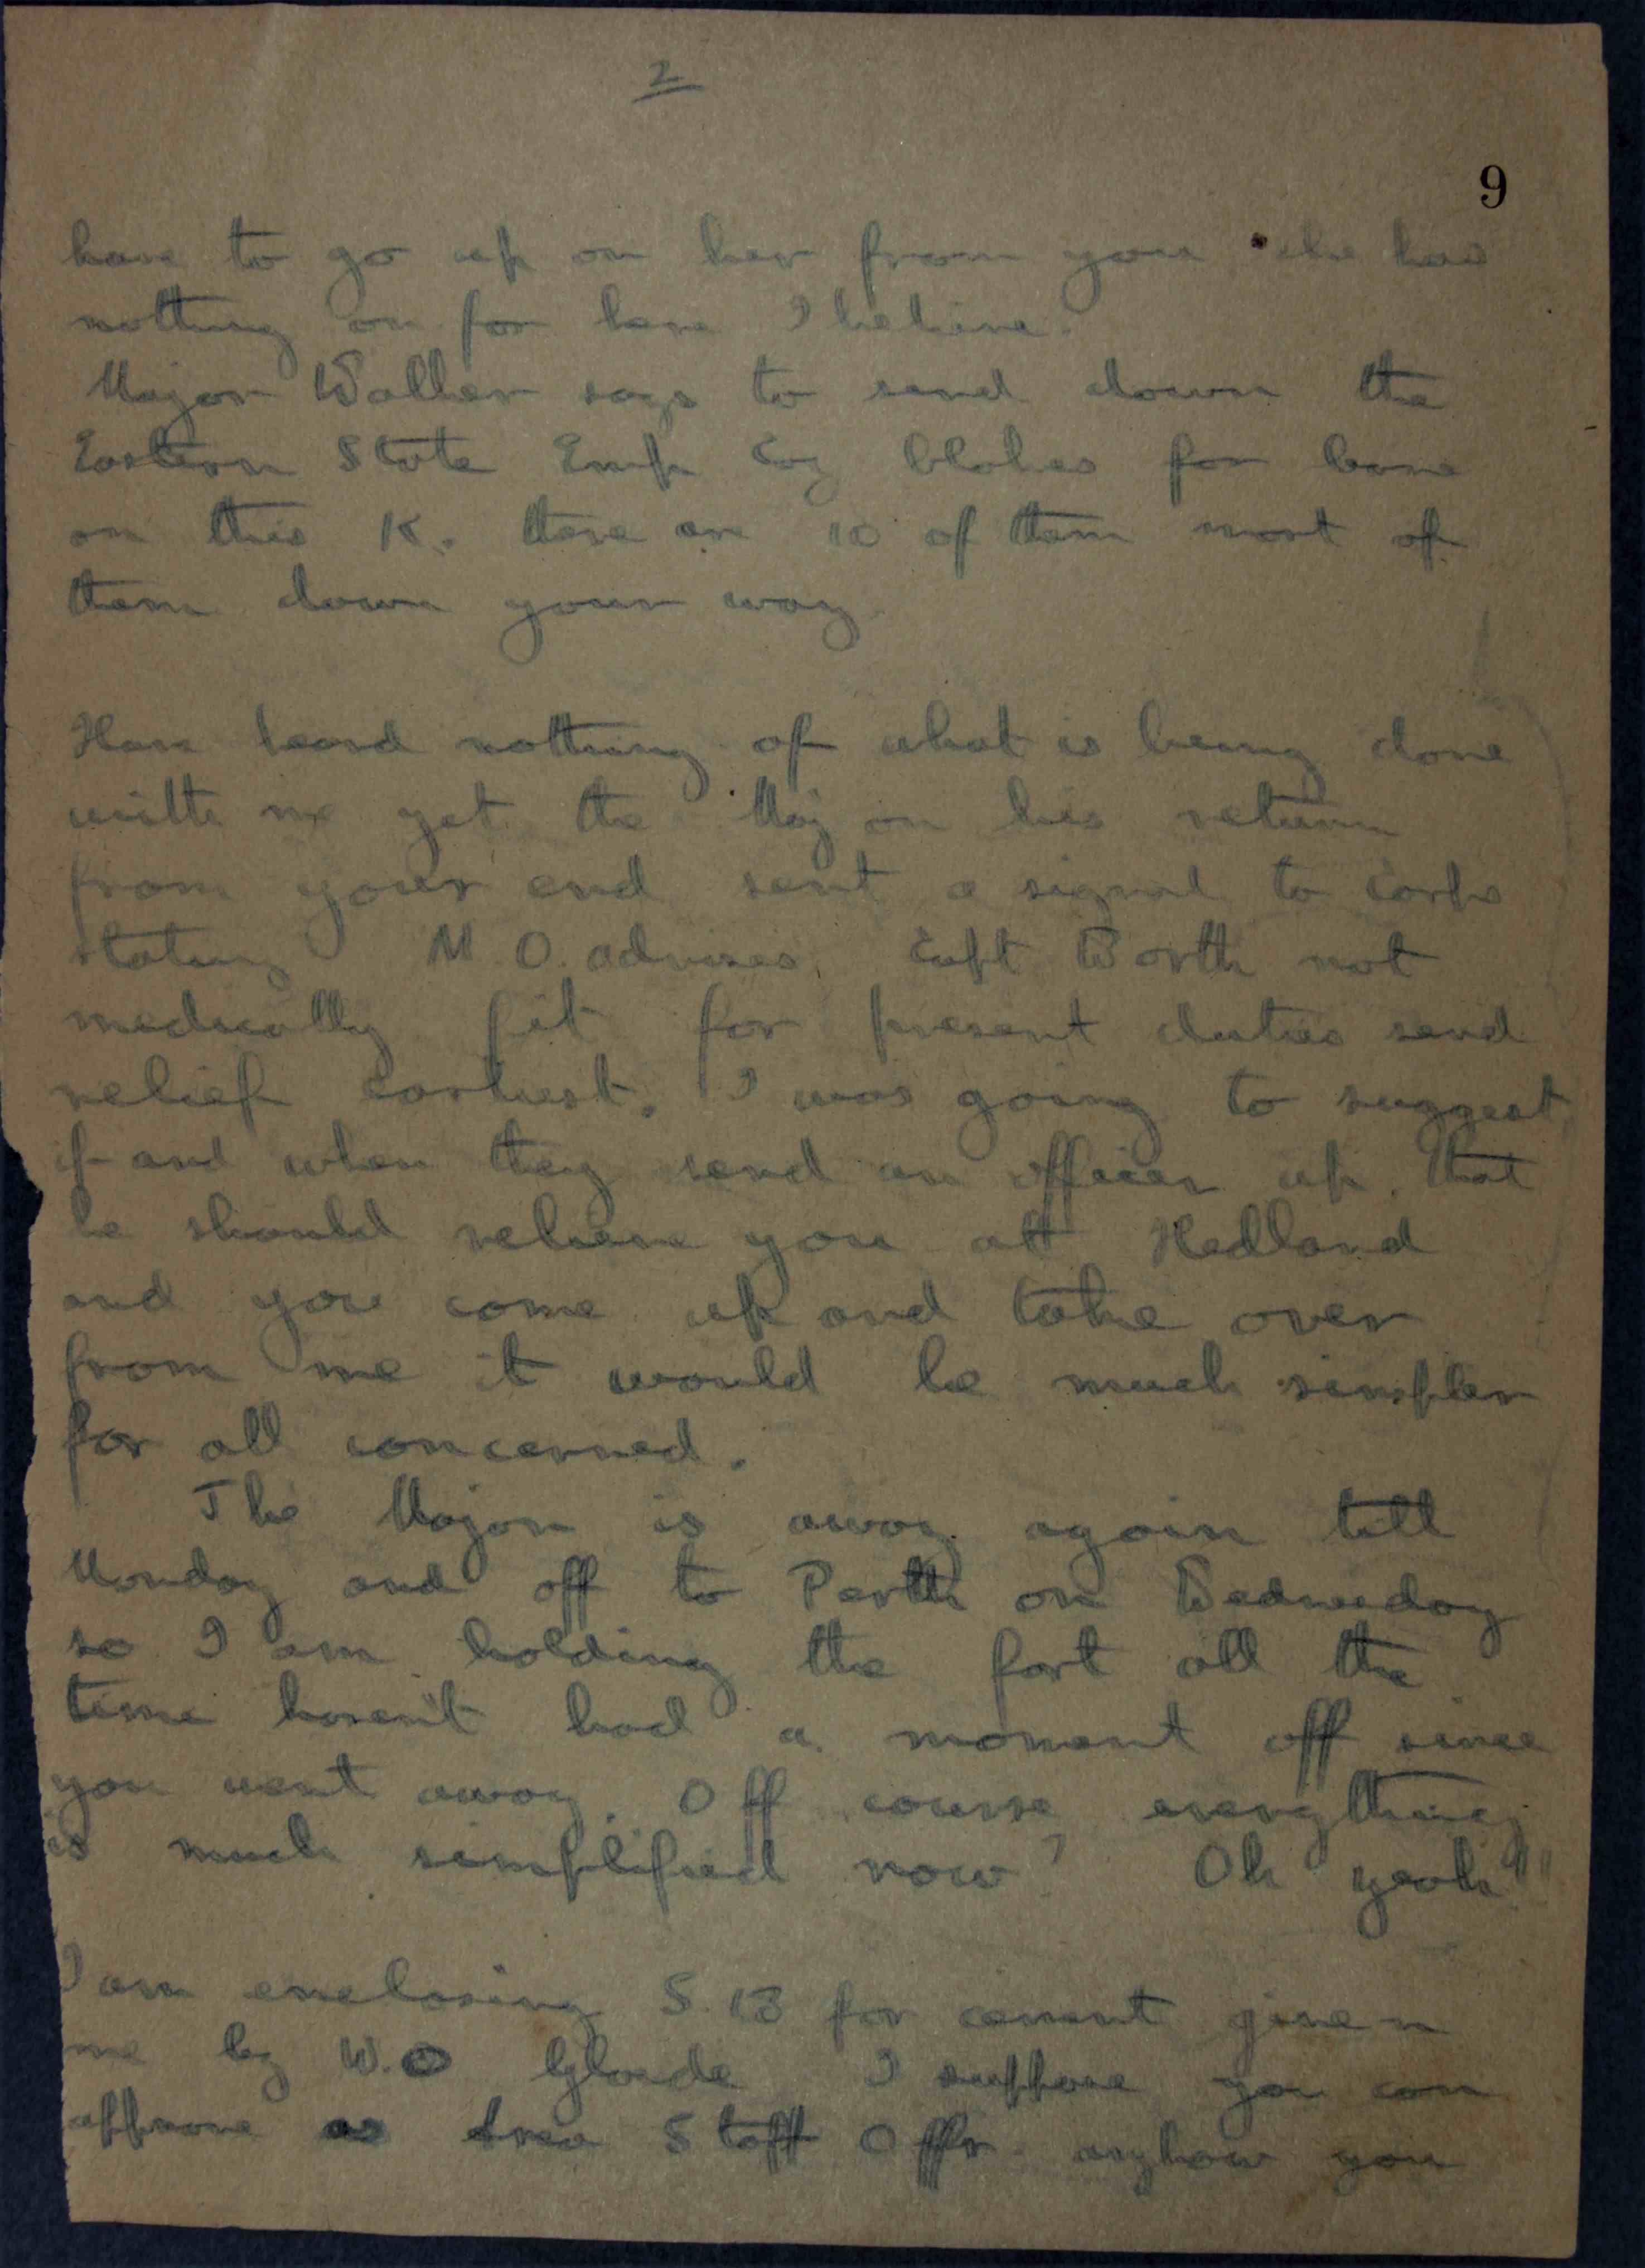 2
9
have to go up on her from you she has
nothing on for here I believe.
Major Walker says to send down the
Eastern State Emp Coy blokes for leave
on this K. there are 10 of them most of
them down your way.
Have heard nothing of what is being done
with me yet the Maj on his return
from your end sent a signal to Corps
stating M.O. advises Capt Worth not
medically fit for present duties send
relief earliest. I was going to suggest
if and when they send an officer up. that
he should relieve you at Hedland
and you come up and take over
from me it would be much simpler
for all concerned.
The Major is away again till
Monday and off to Perth on Wednesday
so I am holding the fort all the
time haven't had a moment off since
you went away. Off course everything
is much simplified now? Oh yeah"
I am enclosing S.13 for cement given
me by W.O I suppose you can
approve as Area Staff Offr. anyhow you